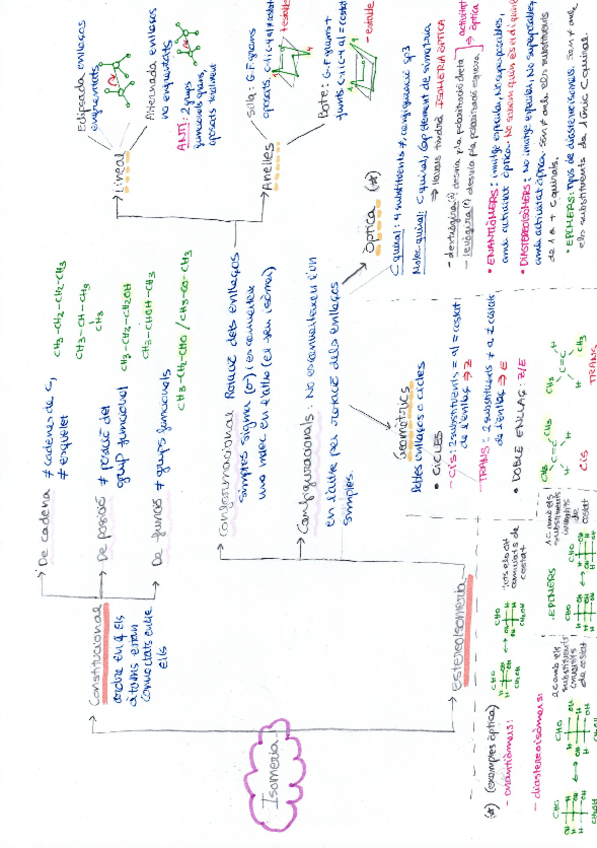 Isomeria
Constitucional
ordre en q els
àtoms estan
connectats entre
ells
De cadena ≠ cadenes de C,
≠ esquelet
CH₃-CH₂-CH₂-CH₃
CH₃-CH-CH₃
CH₃
De posició ≠ posició del
grup funcional
CH₃-CH₂-CH₂OH
CH₃-CHOH-CH₃
De funció ≠ grups funcionals
CH₃-CH₂-CHO / CH₃-CO-CH₃
Estereoisomeria
Conformacional Rotació dels enllaços
simples sigma (σ) i es converteix
una molec en l'altre (el seu isòmer)
Lineal
Eclipsada enllaços
enfrontats
Alternada enllaços
no enfrontats
ANTI: 2 grups
funcionals grans,
oposats totalment
Anelles
Silla: G.F. grans
oposats, C1 i C4 al ≠ costat
+ estable
Bote: G.F. grans +
junts C1 i C4 al = costat
- estable
Configuracionals: No es converteixen l'un
en l'altre per rotació dels enllaços
simples.
Geomètrics
dobles enllaços o cicles
• CICLES
- CIS: 2 substituents = al = costat
de l'enllaç → Z
TRANS: 2 substituents ≠ a ≠ costat
de l'enllaç → E
• DOBLE ENLLAÇ: Z/E
CH₃ CH₃
C=C
H H
CIS
CH₃ H
C=C
H CH₃
TRANS
Òptica (*)
C quiral: 4 substituents ≠, configuració sp3
Molec quiral: C quiral, cap element de simetria
⇒ llavors tindrà ISOMERIA ÒPTICA
- dextrògira (+) desvia pla polarització dreta
- levògira (-) desvia pla polarització esquerra
⇒ activitat
òptica
• ENANTIÒMERS: imatge especular, No superposables,
amb activitat òptica.
• DIASTEREOISÒMERS: No imatge especular, No superposables,
amb activitat òptica. Són ≠ amb els substituents
de 1 o + C quirals.
• EPÍMERS: tipus de diastereoisòmers. Són ≠ amb
els substituents de l'únic C quiral.
(*) (exemples òptica)
- enantiòmers:
CHO
CH₂OH
tots els OH
canviats de
costat
- diastereoisòmers:
2 C amb els
substituents
canviats
de costat
EPÍMERS
1 C amb els
substituents
canviats
de
costat